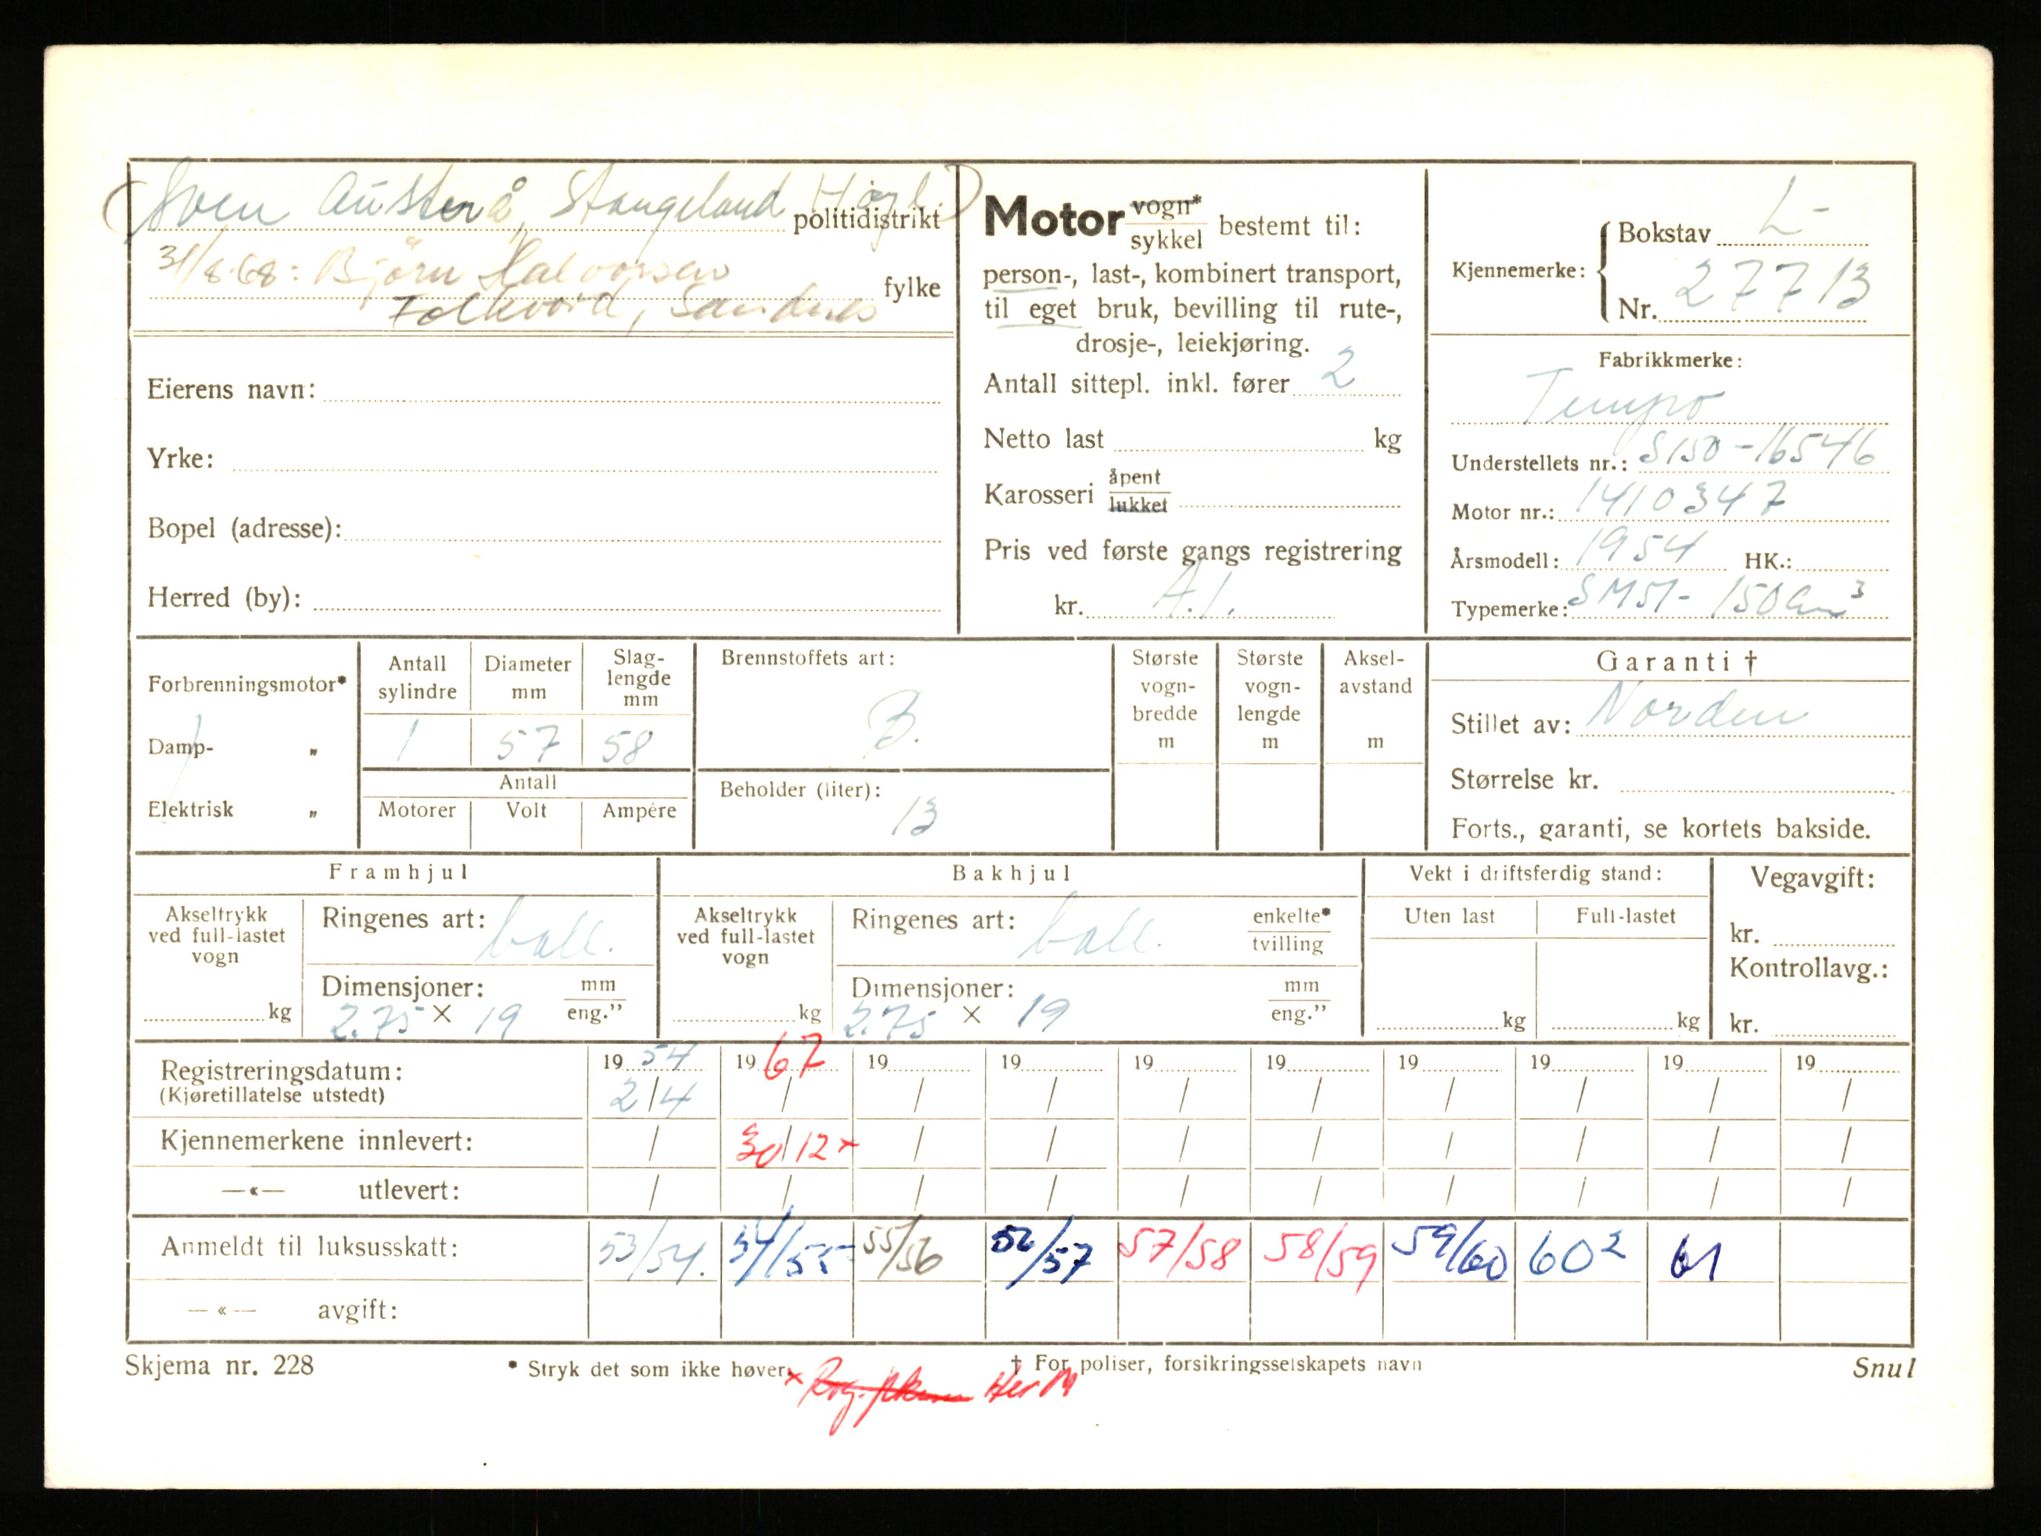 (Sven Austerå, Stangeland Høgl.) politidistrikt
31/8-68: Bjørn Halvorsen
Folkvord, Sandnes fylke
Eierens navn:
Yrke:
Bopel (adresse):
Herred (by):
Motor vogn* / sykkel bestemt til:
person-, last-, kombinert transport,
til eget bruk, bevilling til rute-,
drosje-, leiekjøring.
Antall sittepl. inkl. fører 2
Netto last kg
Karosseri åpent / lukket
Pris ved første gangs registrering
kr. A.I.
Kjennemerke: Bokstav L-
Nr. 27713
Fabrikkmerke:
Tempo
Understellets nr.: S150-16546
Motor nr.: 1410347
Årsmodell: 1954 HK.:
Typemerke: SM51- 150 cm³
Forbrenningsmotor*
Damp- „
Elektrisk „
Antall sylindre 1
Diameter mm 57
Slag-lengde mm 58
Antall
Motorer Volt Ampére
Brennstoffets art:
B.
Beholder (liter):
13
Største vogn-bredde m
Største vogn-lengde m
Aksel-avstand m
Garanti †
Stillet av: Norden
Størrelse kr.
Forts., garanti, se kortets bakside.
Framhjul
Akseltrykk ved full-lastet vogn
kg
Ringenes art: ball.
Dimensjoner: mm / eng."
2.75 × 19
Bakhjul
Akseltrykk ved full-lastet vogn
kg
Ringenes art: ball. enkelte* / tvilling
Dimensjoner: mm / eng."
2.75 × 19
Vekt i driftsferdig stand:
Uten last Full-lastet
kg kg
Vegavgift:
kr.
Kontrollavg.:
kr.
Registreringsdatum: 1954 1967 19 19 19 19 19 19 19 19
(Kjøretillatelse utstedt) 2/4 / / / / / / / / /
Kjennemerkene innlevert: / 30/12 × / / / / / / / /
—«— utlevert: / / / / / / / / / /
Anmeldt til luksusskatt: 53/54. 54/55 55/56 56/57 57/58 58/59 59/60 60² 61
—«— avgift:
Skjema nr. 228 * Stryk det som ikke høver. † For poliser, forsikringsselskapets navn Snul
×